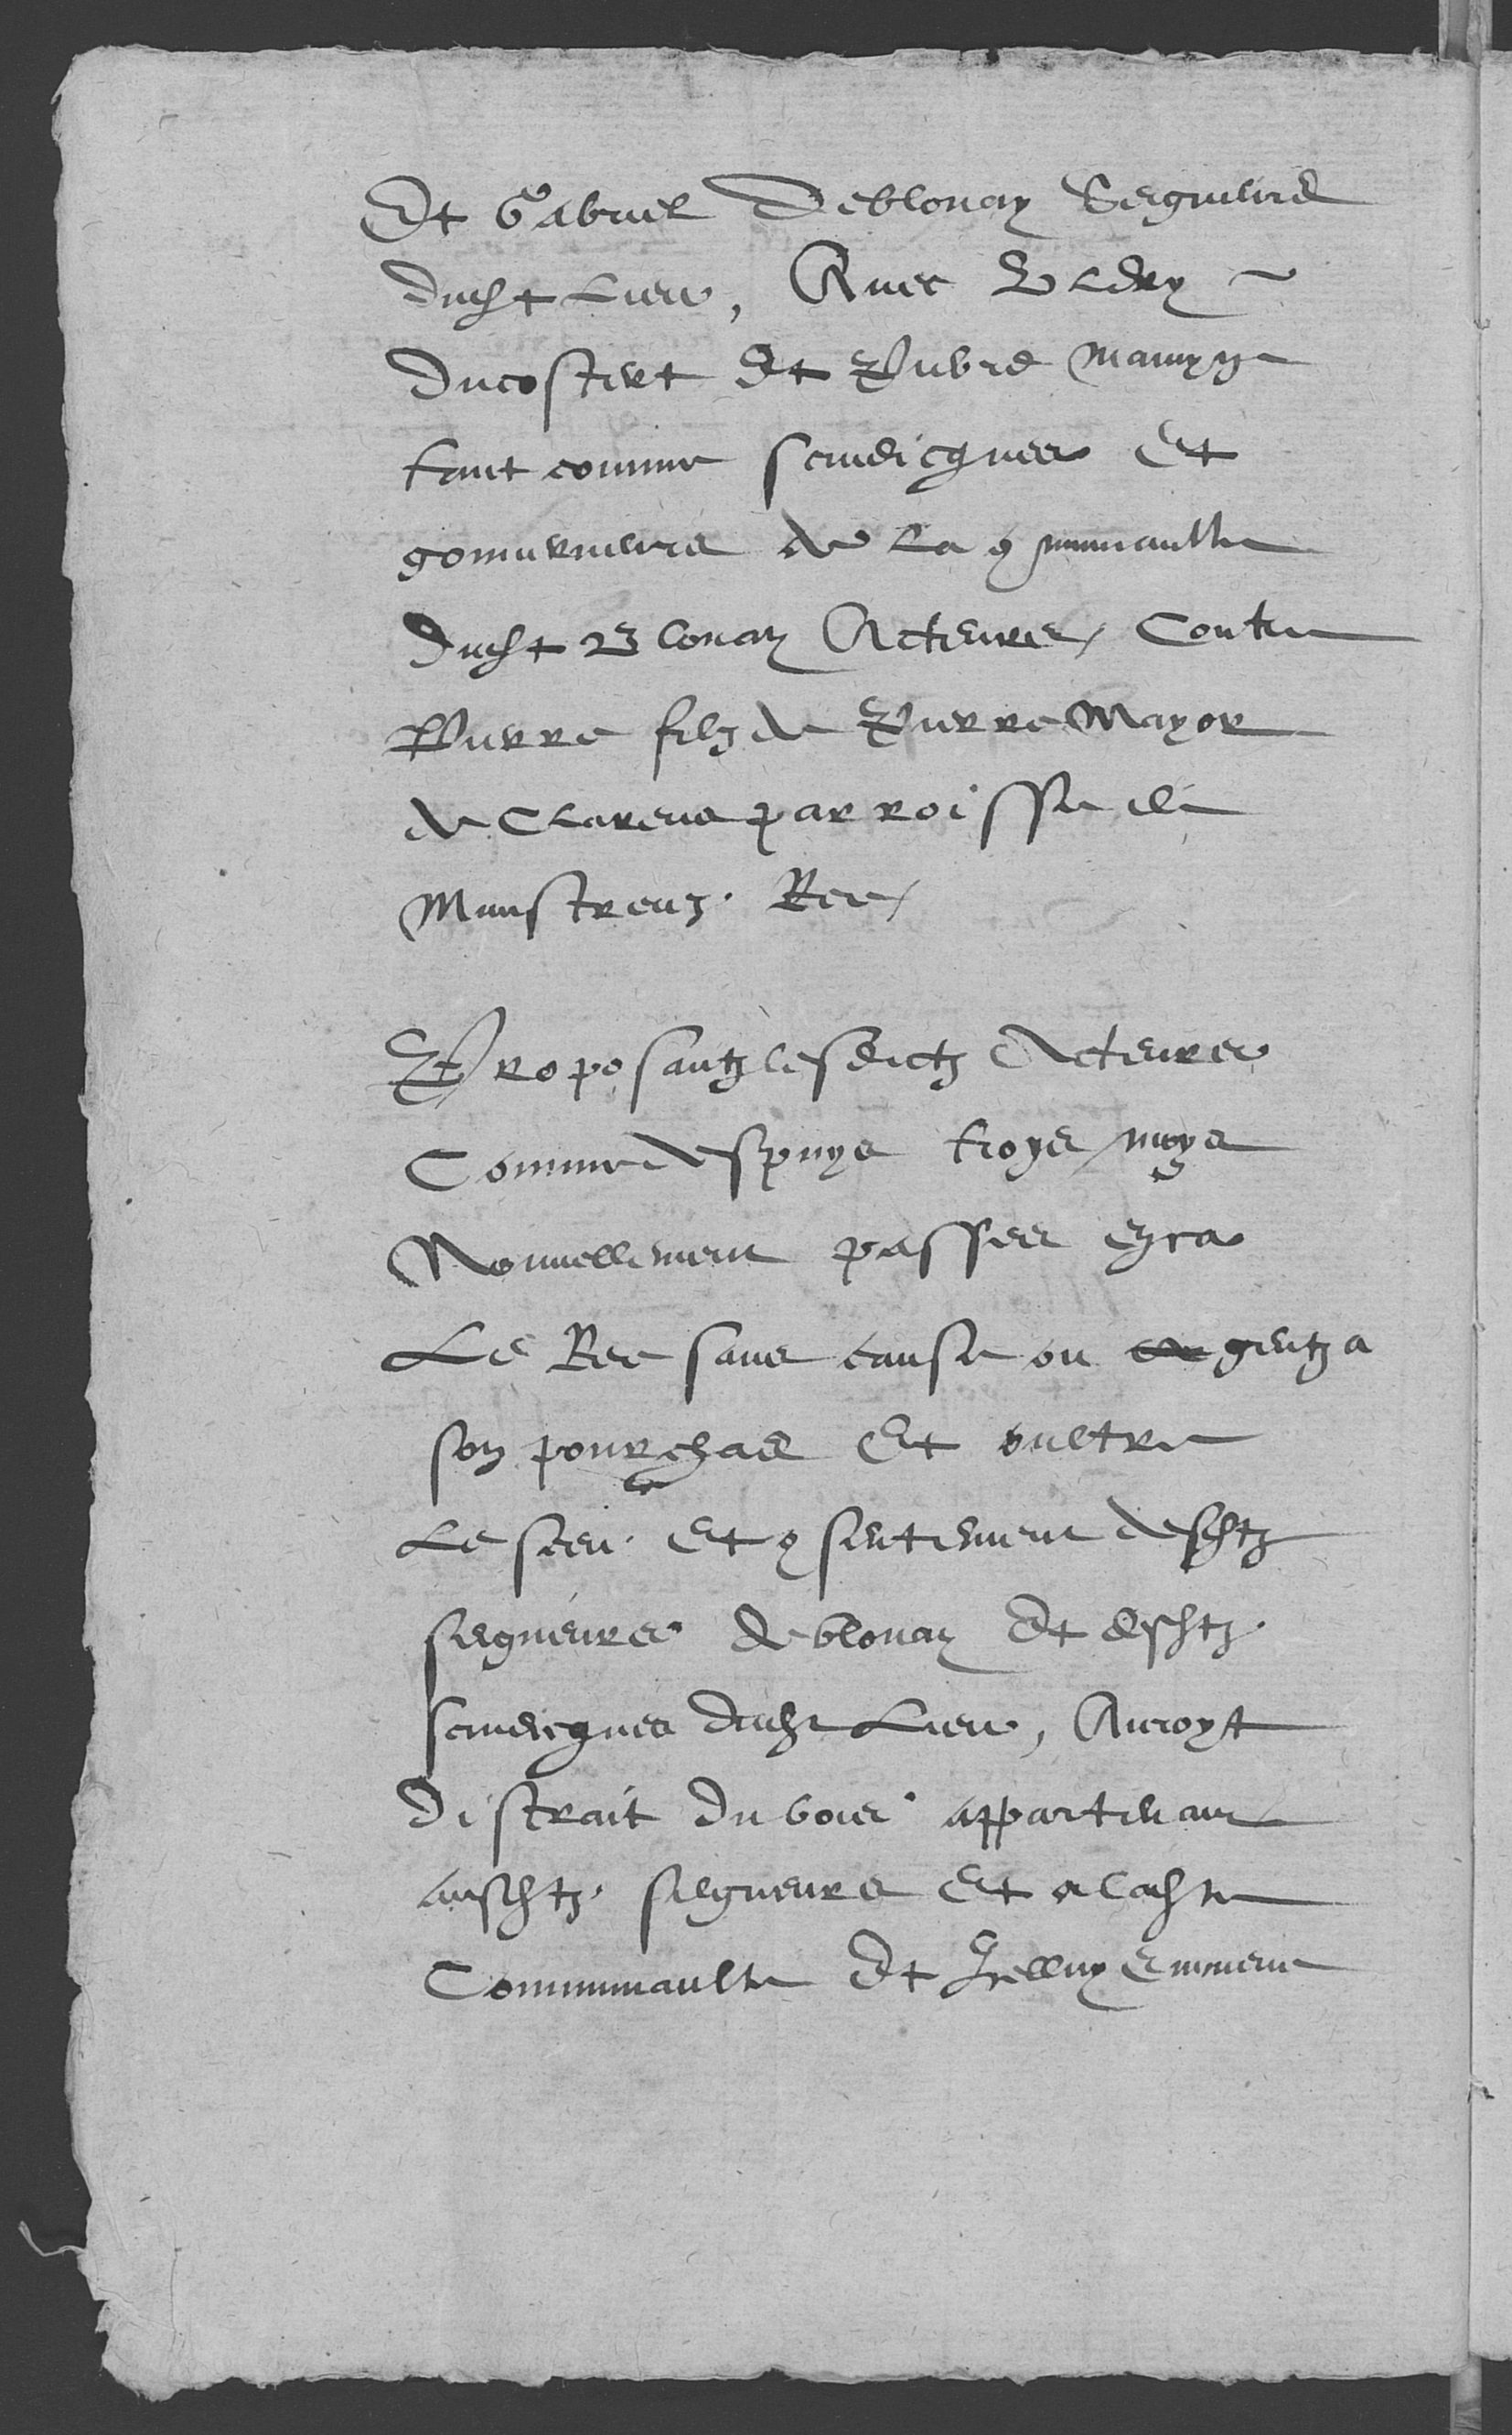 Et Gabriel Deblonay Seigneurs
dudit Lieu, Avec Uldry ~
Ducostert Et Pierre mamyn
tant comme scindicques Et
gouverneurs de la 9munaulte
dudit Blonay Acteurs, Contre
Pierre filz de Pierre Mayor
de Clarens parroisse de
Munstreuz. Ree,
Proposantz lesdictz Acteurs
Comme despuys troys moys
Nouvellement passes enca
Le Ree sans cause ou gentz a
son pourchas Et oultre
Le sceu. Et 9sentement desditz
seigneurs de blonay Et desditz.
scindicques dudit Lieu, Auroyt
distrait du bois appartenant
ausditz. seigneurs Et a ladite
Communaulte Et Icelluy Emmene